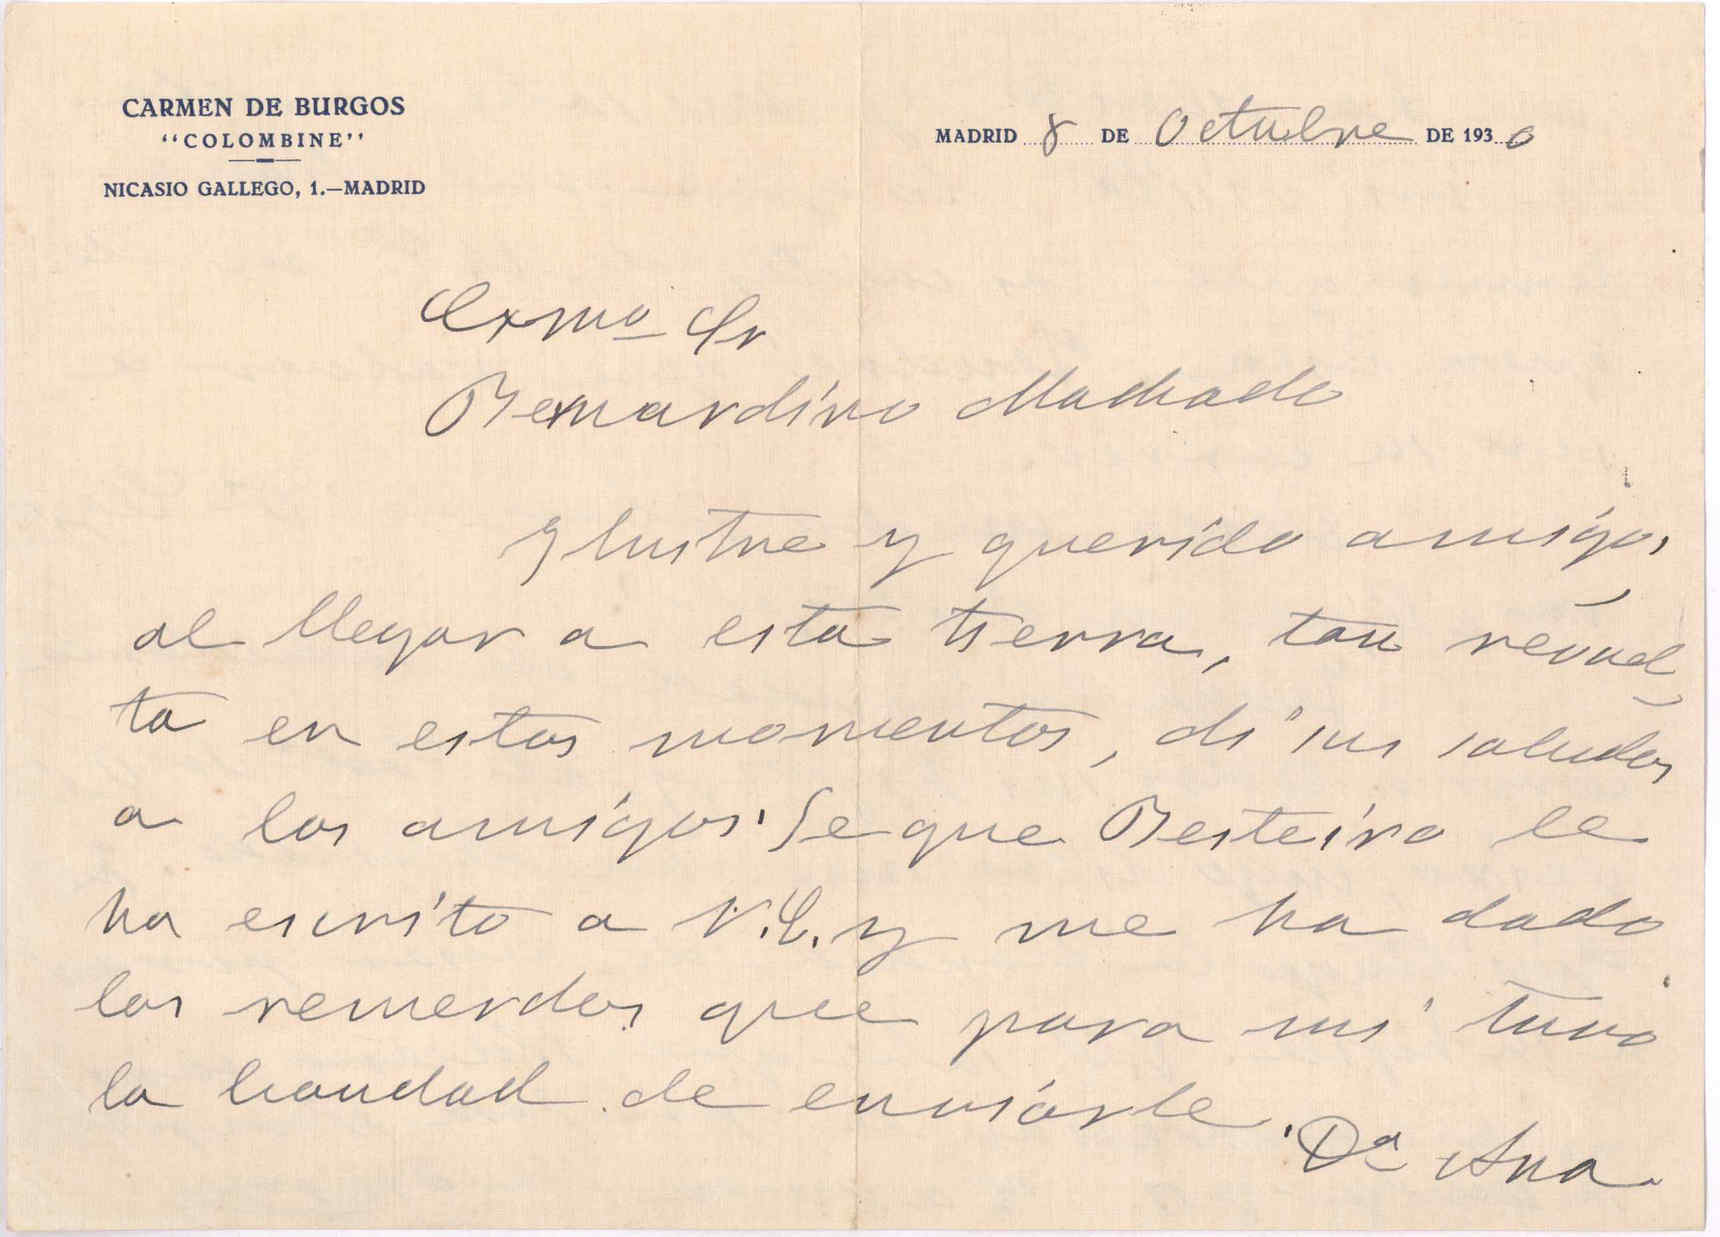 CARMEN DE BURGOS
"COLOMBINE"
NICASIO GALLEGO, 1.—MADRID
MADRID 8 DE Octubre DE 1930
Exmo Sr
Bernardino Machado
Ylustre y querido amigo,
al llegar a esta tierra, tan revuel
ta en estos momentos, di sus saludos
a los amigos. Se que Besteiro le
ha escrito a V.E. y me ha dado
los recuerdos que para mi tuvo
la bondad de enviarle. Dª Ana